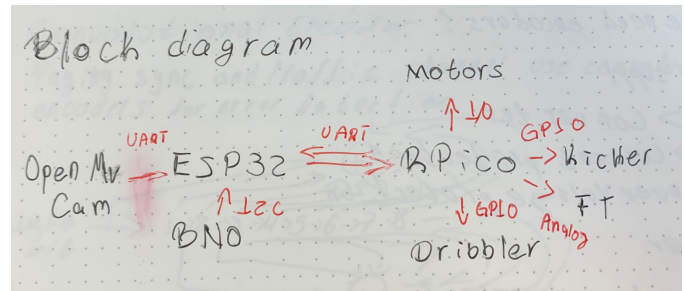 Block diagram
Motors
↑ I/O
UART UART GPIO
Open Mv → ESP32 ⇄ RPico → Kicher
Cam ↑ I2C ↓ GPIO Analog FT
BNO Dribbler